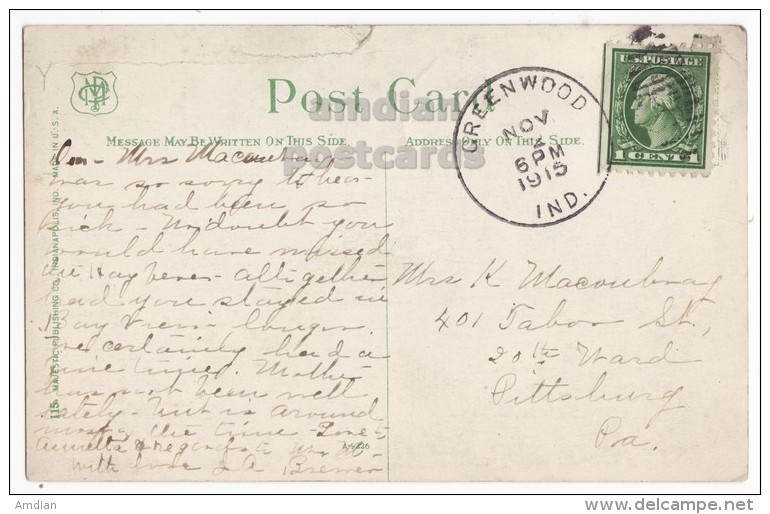 Post Card
amdian
postcards
MESSAGE MAY BE WRITTEN ON THIS SIDE.
ADDRESS ONLY ON THIS SIDE.
GREENWOOD
NOV
2
6 PM
1915
IND.
U.S. POSTAGE
1 CENT 1
115 MAJESTIC PUBLISHING CO. INDIANAPOLIS, IND. MADE IN U.S.A.
Mrs Macoubray
was so sorry to hear
you had been so
sick - No doubt you
would have missed
Hay Fever - altogether
had you stayed in
Bay View longer.
We certainly had a
fine time. Mother
has not been well
lately - but is around
most of the time - Love to
regards to Mr M
with love J A Brewer
Mrs K Macoubray
401 Tabor St.,
20th Ward
Pittsburg
Pa.
Amdian
www.delcampe.net